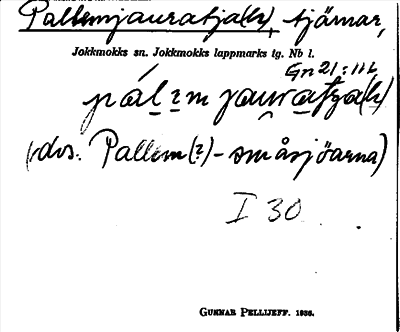 Pallemjauratja(h), tjärnar,
Jokkmokks sn. Jokkmokks lappmarks tg. Nb l.
Gn 21:112
(dvs. Pallem(?)-småsjöarna)
I 30
GUNNAR PELLIJEFF. 1936.